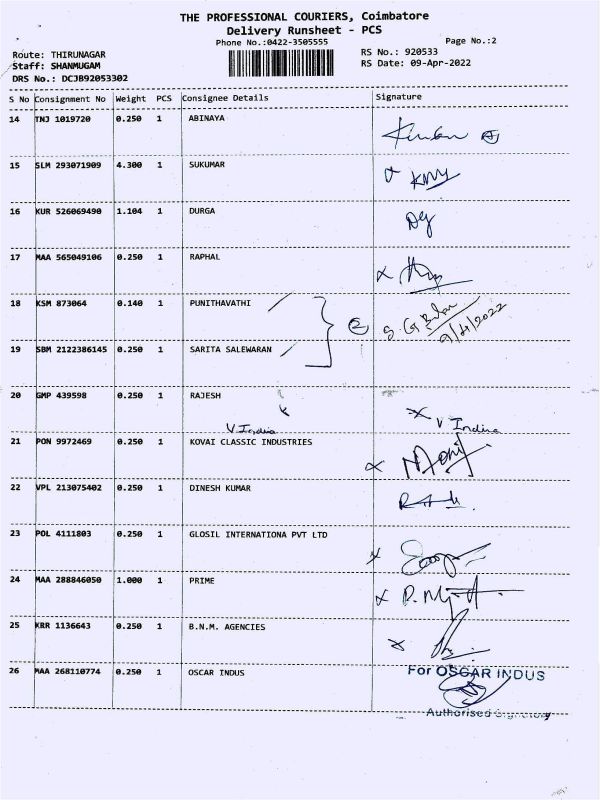 THE PROFESSIONAL COURIERS, Coimbatore
Delivery Runsheet - PCS
Phone No.:0422-3505555
Page No.:2
Route: THIRUNAGAR
RS No.: 920533
Staff: SHANMUGAM
RS Date: 09-Apr-2022
DRS No.: DCJB92053302
S No Consignment No Weight PCS Consignee Details Signature
14 TNJ 1019720 0.250 1 ABINAYA
15 SLM 293071909 4.300 1 SUKUMAR
16 KUR 526069490 1.104 1 DURGA
17 MAA 565049106 0.250 1 RAPHAL
18 KSM 873064 0.140 1 PUNITHAVATHI
2
9/4/2022
19 SBM 2122386145 0.250 1 SARITA SALEWARAN
20 GMP 439598 0.250 1 RAJESH
V India V India
21 PON 9972469 0.250 1 KOVAI CLASSIC INDUSTRIES
22 VPL 213075402 0.250 1 DINESH KUMAR
23 POL 4111803 0.250 1 GLOSIL INTERNATIONA PVT LTD
24 MAA 288846050 1.000 1 PRIME
25 KRR 1136643 0.250 1 B.N.M. AGENCIES
26 MAA 268110774 0.250 1 OSCAR INDUS
For OSCAR INDUS
Authorised Signatory